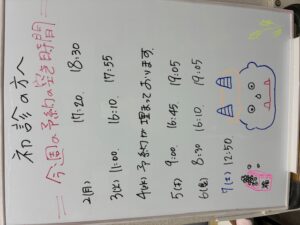 初診の方へ
今週の予約の空き時間
2(月) 17:20 18:30
3(火) 11:00 16:10 17:55
4(水) 予約が埋まっております。
5(木) 9:00 16:45 19:05
6(金) 8:30 16:10 19:05
7(土) 12:50